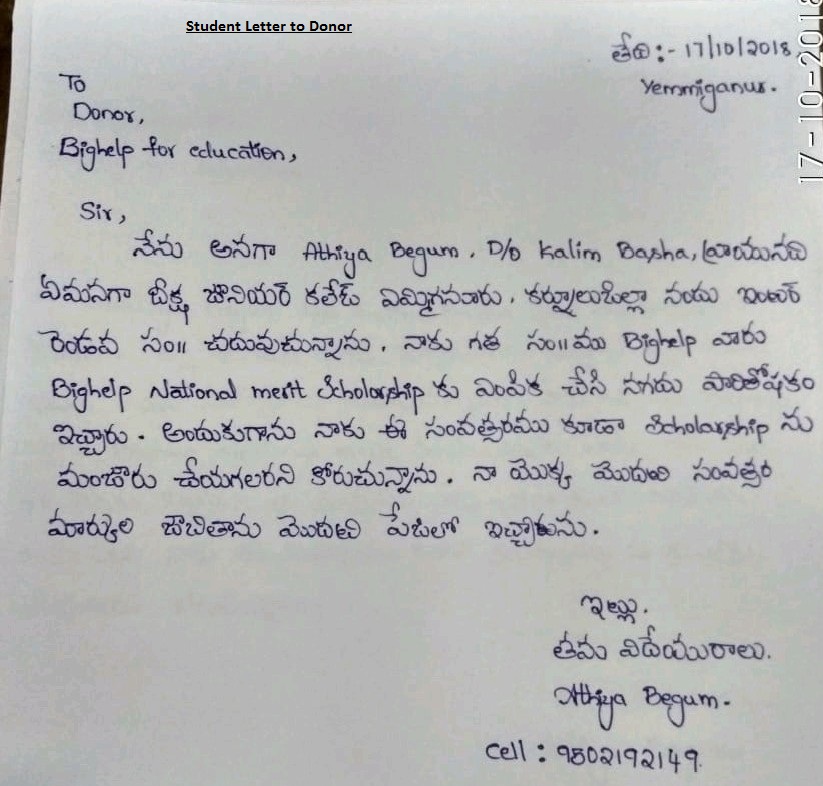 Student Letter to Donor
తేది :- 17/10/2018,
Yemmiganur.
To
Donor,
Bighelp for education,
Sir,
నేను అనగా Athiya Begum. D/o Kalim Basha, వ్రాయునది
ఏమనగా దీక్ష జూనియర్ కలేజ్ ఎమ్మిగనూరు. కర్నూలుజిల్లా నందు ఇంటర్
రెండవ సం॥ చదువుచున్నాను. నాకు గత సం॥ము Bighelp వారు
Bighelp National merit Scholarship కు ఎంపిక చేసి నగదు పారితోషకం
ఇచ్చారు. అందుకుగాను నాకు ఈ సంవత్సరము కూడా Scholarship ను
మంజూరు చేయగలరని కోరుచున్నాను. నా యొక్క మొదటి సంవత్సర
మార్కుల జాబితాను మొదటి పేజిలో ఇచ్చాను.
ఇట్లు.
తమ విదేయురాలు.
Athiya Begum.
Cell : 9502192149
17-10-2018